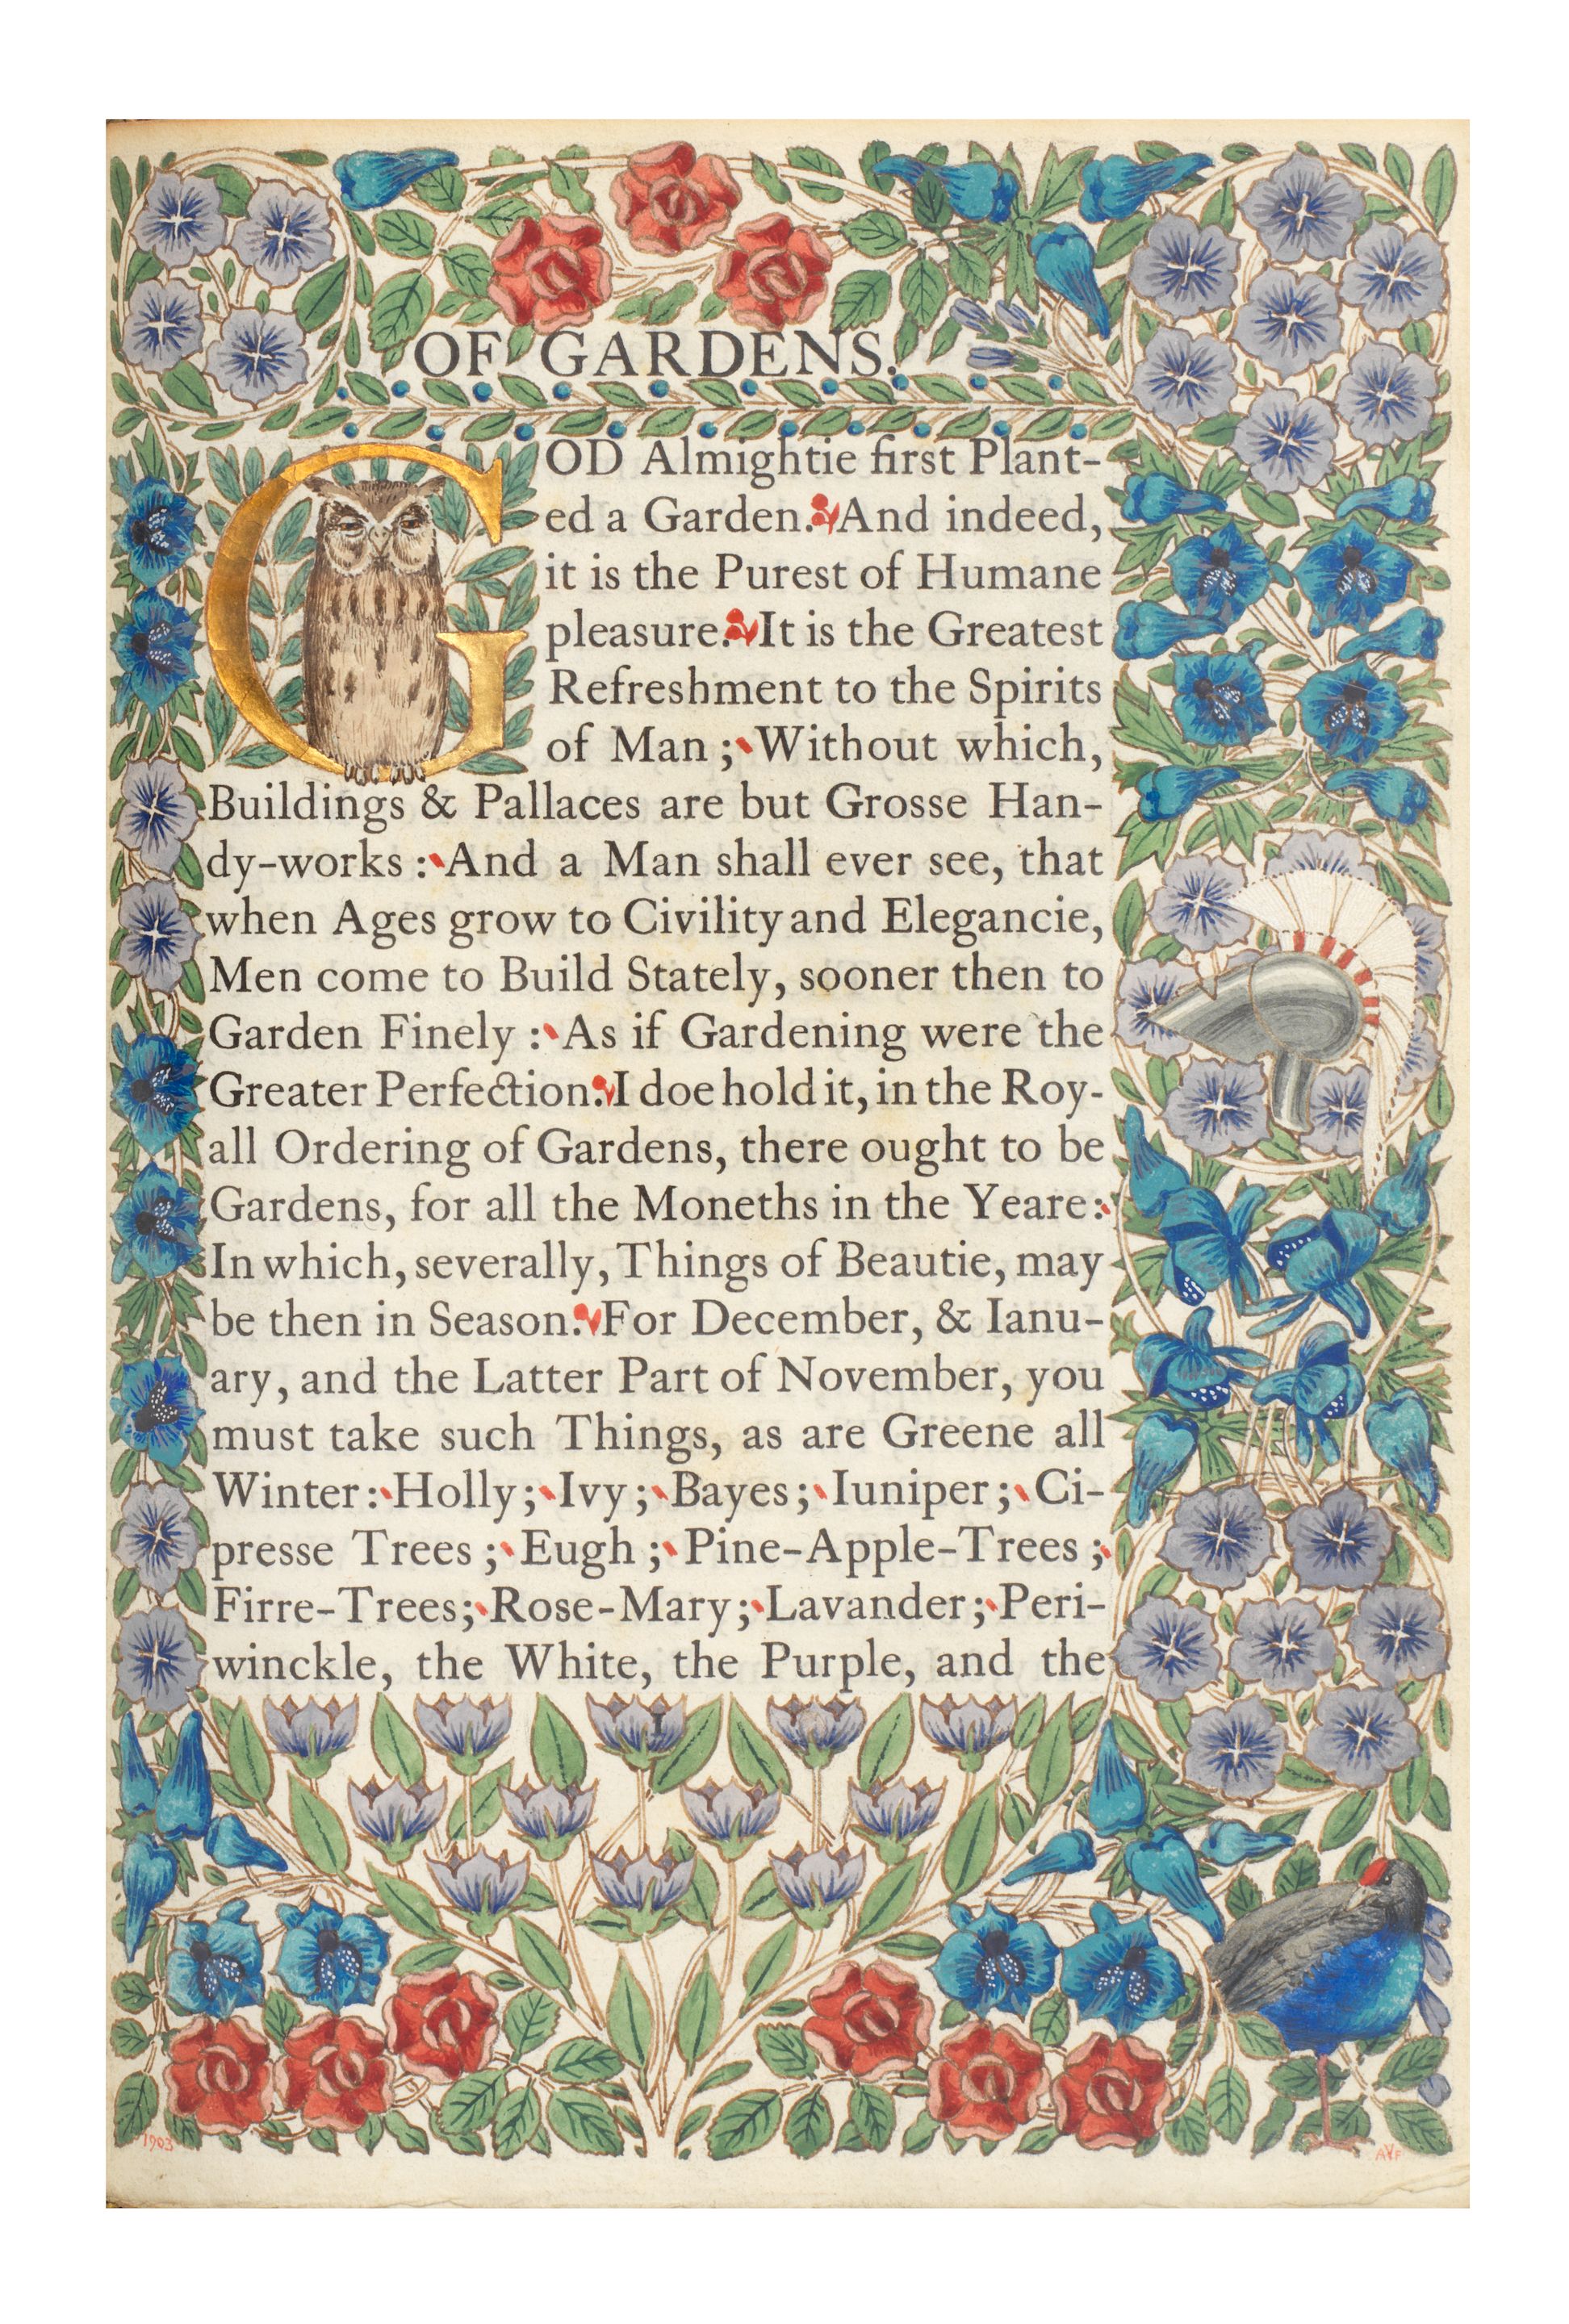 OF GARDENS.
GOD Almightie first Plant-
ed a Garden. And indeed,
it is the Purest of Humane
pleasure. It is the Greatest
Refreshment to the Spirits
of Man; Without which,
Buildings & Pallaces are but Grosse Han-
dy-works: And a Man shall ever see, that
when Ages grow to Civility and Elegancie,
Men come to Build Stately, sooner then to
Garden Finely: As if Gardening were the
Greater Perfection. I doe hold it, in the Roy-
all Ordering of Gardens, there ought to be
Gardens, for all the Moneths in the Yeare:
In which, severally, Things of Beautie, may
be then in Season. For December, & Ianu-
ary, and the Latter Part of November, you
must take such Things, as are Greene all
Winter: Holly; Ivy; Bayes; Iuniper; Ci-
presse Trees; Eugh; Pine-Apple-Trees;
Firre-Trees; Rose-Mary; Lavander; Peri-
winckle, the White, the Purple, and the
1
1903
AVF